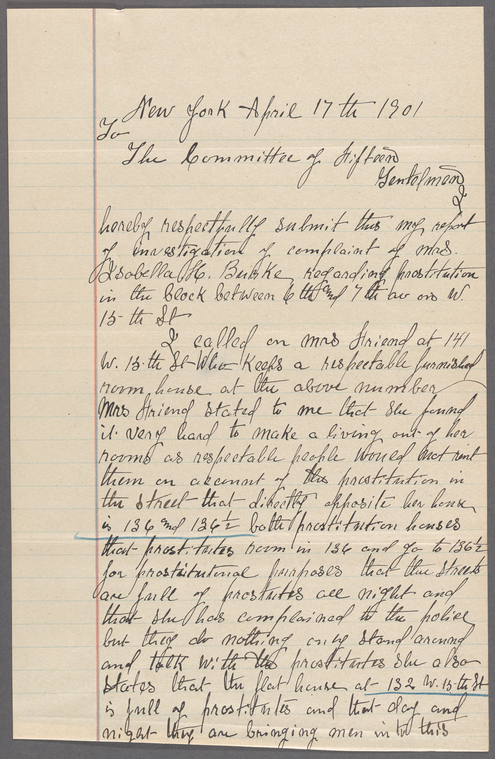 New York April 17th 1901
To
The Committee of Fifteen
Gentelmen
I
hereby respectfully submit this my report
of investigation of complaint of Mrs.
Isabella H. Burke, regarding prostitution
in the block between 6th and 7th av on W.
15th St
I called on Mrs Friend at 141
W. 15th St Who Keeps a respectable furnished
room house at the above number
Mrs Friend stated to me that she found
it very hard to make a living out of her
rooms as respectable people would not rent
them on account of the prostitution in
the street that directly opposite her house
is 136 and 136½ both prostitution houses
that prostitutes room in 136 and go to 136½
for prostitutional purposes that the streets
are full of prostutes all night and
that she has complained to the police
but they do nothing only stand around
and talk with the prostitutes she also
states that the flat house at 132 W. 15th St
is full of prostitutes and that day and
night they are bringing men into this